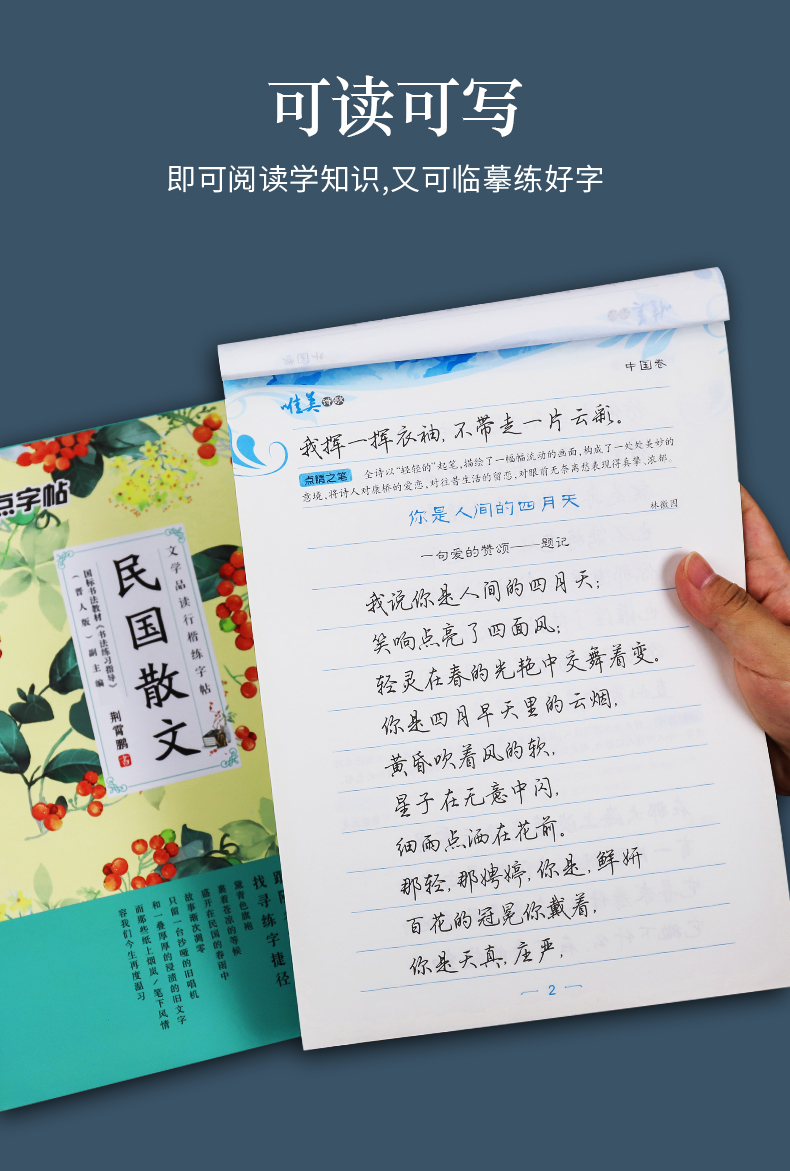 可读可写
即可阅读学知识,又可临摹练好字
中国卷
唯美诗歌
我挥一挥衣袖,不带走一片云彩。
点睛之笔 全诗以“轻轻的”起笔,描绘了一幅幅流动的画面,构成了一处处美妙的
意境,将诗人对康桥的爱恋,对往昔生活的留恋,对眼前无奈离愁表现得真挚、浓郁。
你是人间的四月天
林徽因
一句爱的赞颂——题记
我说你是人间的四月天;
笑响点亮了四面风;
轻灵在春的光艳中交舞着变。
你是四月早天里的云烟,
黄昏吹着风的软,
星子在无意中闪,
细雨点洒在花前。
那轻,那娉婷,你是,鲜妍
百花的冠冕你戴着,
你是天真,庄严,
2
点字帖
文学品读行楷练字帖
民国散文
国标书法教材《书法练习指导》
(晋人版)副主编
荆霄鹏 书
找寻练字捷径
黛青色旗袍
裹着苍凉的等候
盛开在民国的春雨中
故事渐次凋零
只留一台沙哑的旧唱机
和一叠厚厚的浸渍的旧文字
而那些纸上烟岚/笔下风情
容我们今生再度温习